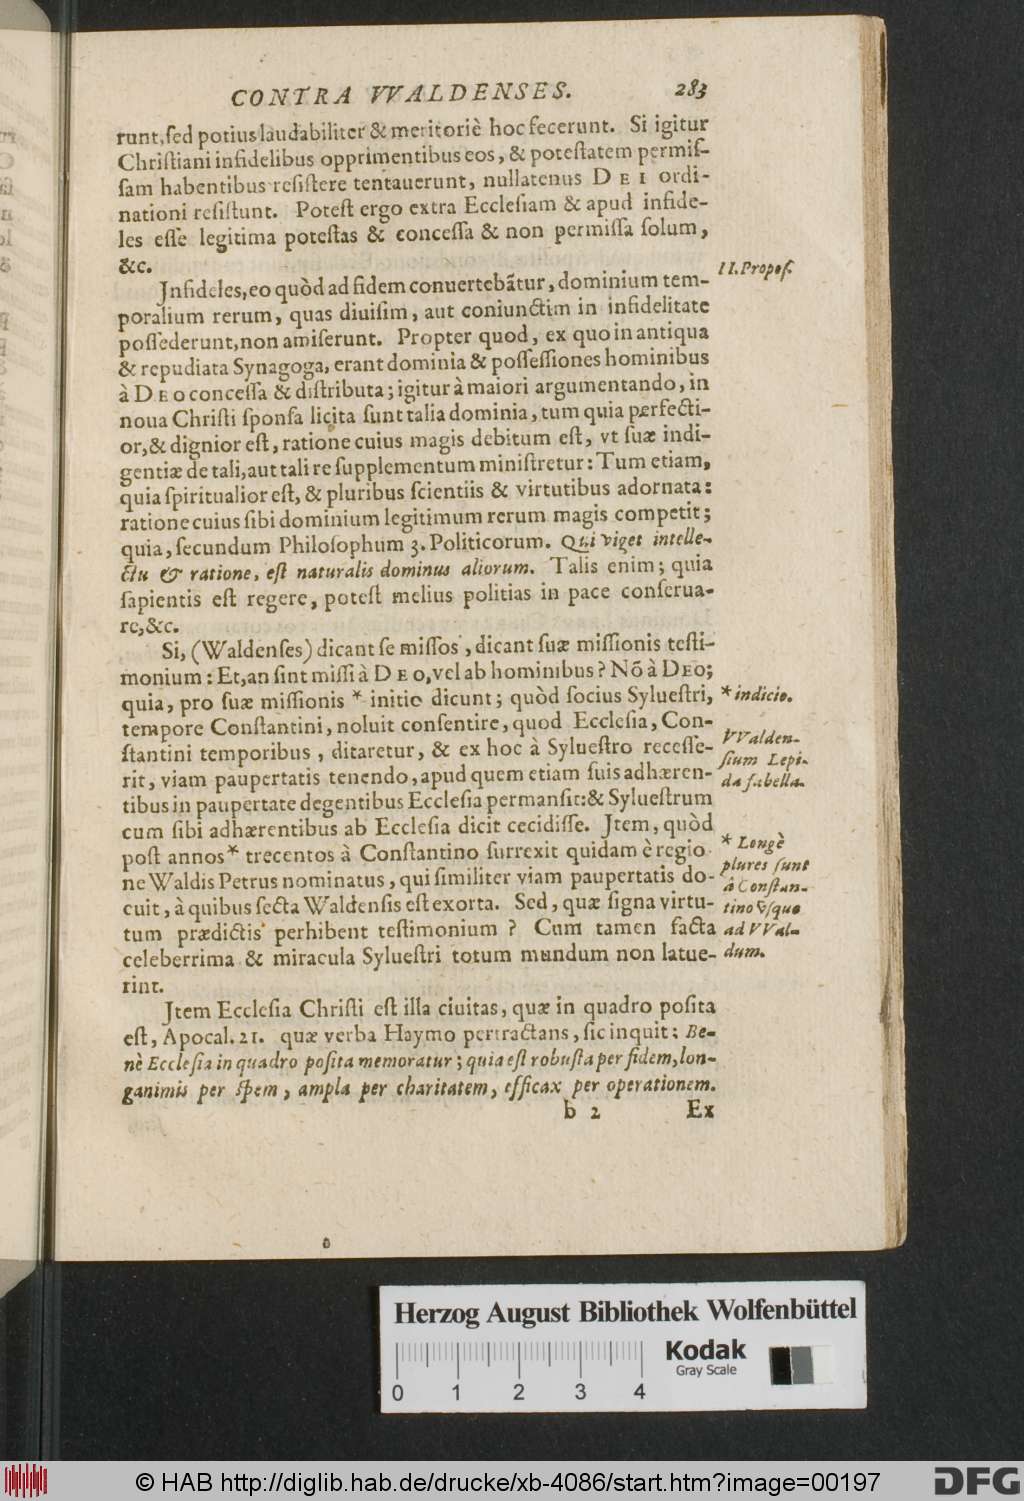 CONTRA VVALDENSES. 283
runt, sed potius laudabiliter & meritoriè hoc fecerunt. Si igitur
Christiani infidelibus opprimentibus eos, & potestatem permis-
sam habentibus resistere tentauerunt, nullatenus DEI ordi-
nationi resistunt. Potest ergo extra Ecclesiam & apud infide-
les esse legitima potestas & concessa & non permissa solum,
&c.
II. Propos.
Jnfideles, eo quòd ad fidem conuertebãtur, dominium tem-
poralium rerum, quas diuisim, aut coniunctim in infidelitate
possederunt, non amiserunt. Propter quod, ex quo in antiqua
& repudiata Synagoga, erant dominia & possessiones hominibus
à DEO concessa & distributa; igitur à maiori argumentando, in
noua Christi sponsa licita sunt talia dominia, tum quia perfecti-
or, & dignior est, ratione cuius magis debitum est, vt suæ indi-
gentiæ de tali, aut tali re supplementum ministretur: Tum etiam,
quia spiritualior est, & pluribus scientiis & virtutibus adornata:
ratione cuius sibi dominium legitimum rerum magis competit;
quia, secundum Philosophum 3. Politicorum. Qui viget intelle-
ctu & ratione, est naturalis dominus aliorum. Talis enim; quia
sapientis est regere, potest melius politias in pace conserua-
re, &c.
Si, (Waldenses) dicant se missos, dicant suæ missionis testi-
monium: Et, an sint missi à DEO, vel ab hominibus? Nõ à DEO;
quia, pro suæ missionis * initio dicunt; quòd socius Syluestri,
* indicio.
tempore Constantini, noluit consentire, quod Ecclesia, Con-
stantini temporibus, ditaretur, & ex hoc à Syluestro recesse-
rit, viam paupertatis tenendo, apud quem etiam suis adhæren-
VValden-
sium Lepi-
da fabella.
tibus in paupertate degentibus Ecclesia permansit: & Syluestrum
cum sibi adhærentibus ab Ecclesia dicit cecidisse. Jtem, quòd
post annos * trecentos à Constantino surrexit quidam è regio
ne Waldis Petrus nominatus, qui similiter viam paupertatis do-
cuit, à quibus secta Waldensis est exorta. Sed, quæ signa virtu-
tum prædictis perhibent testimonium? Cum tamen facta
celeberrima & miracula Syluestri totum mundum non latue-
rint.
* Longè
plures sunt
â Constan-
tino vsque
ad VVal-
dum.
Jtem Ecclesia Christi est illa ciuitas, quæ in quadro posita
est, Apocal. 21. quæ verba Haymo pertractans, sic inquit: Be-
nè Ecclesia in quadro posita memoratur; quia est robusta per fidem, lon-
ganimis per spem, ampla per charitatem, efficax per operationem.
b 2 Ex
Herzog August Bibliothek Wolfenbüttel
Kodak
Gray Scale
0 1 2 3 4
© HAB http://diglib.hab.de/drucke/xb-4086/start.htm?image=00197
DFG